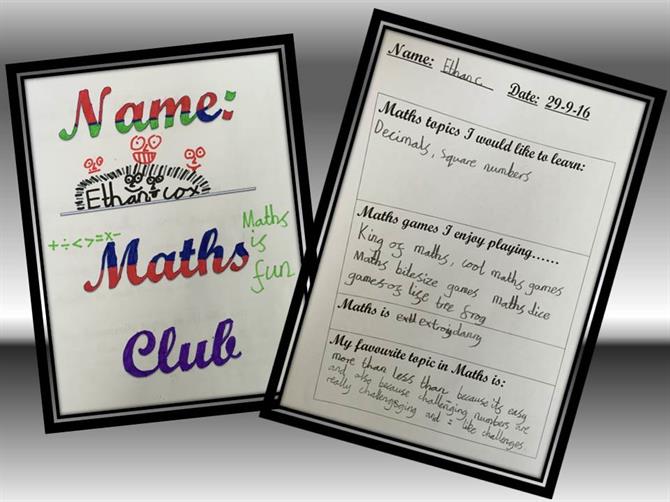 Name:
Ethan cox
+÷<>=x-
Maths
is
fun
Maths
Club
Name: Ethan c. Date: 29-9-16
Maths topics I would like to learn:
Decimals, Square numbers
Maths games I enjoy playing......
King of maths, cool maths games
Maths bitesize games maths dice
games of life tree frog
Maths is
My favourite topic in Maths is:
more than less than because its easy
and also because challenging numbers are
really challenging and like challenges.